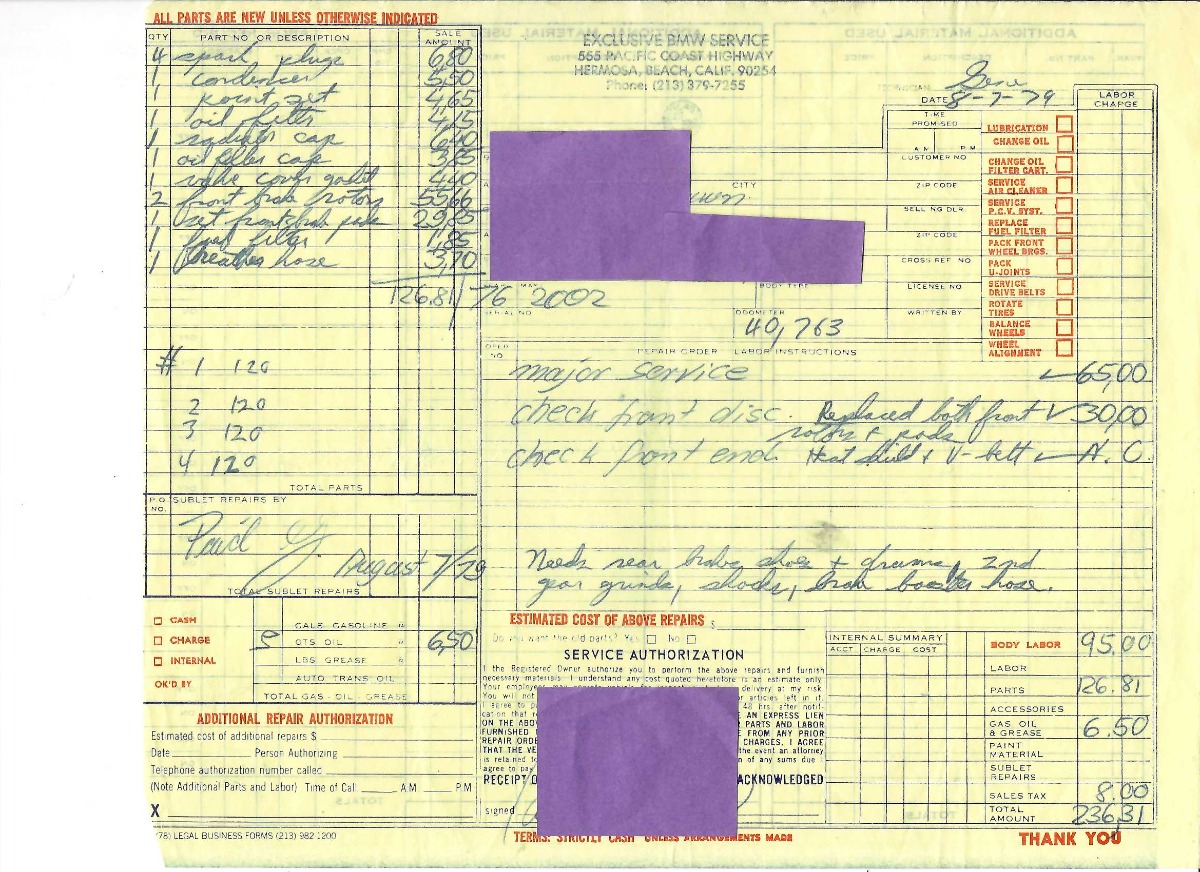 ALL PARTS ARE NEW UNLESS OTHERWISE INDICATED
QTY PART NO OR DESCRIPTION SALE AMOUNT
4 spark plugs 6.80
1 condenser 5.50
1 point set 4.65
1 oil filter 4.15
1 radiator cap 6.40
1 oil filler cap 3.85
1 valve cover gasket 4.40
2 front brake rotors 55.66
1 set front brak pads 29.85
1 fuel filter 1.85
1 breather hose 3.70
126.81
# 1 120
2 120
3 120
4 120
TOTAL PARTS
P.O. NO. SUBLET REPAIRS BY
Paid
August 7/79
TOTAL SUBLET REPAIRS
CASH
CHARGE
INTERNAL
OK'D BY
GALS. GASOLINE @
5 QTS. OIL @ 6.50
LBS GREASE @
AUTO TRANS OIL
TOTAL GAS - OIL - GREASE
ADDITIONAL REPAIR AUTHORIZATION
Estimated cost of additional repairs $
Date Person Authorizing
Telephone authorization number called
(Note Additional Parts and Labor) Time of Call AM PM
X
(78) LEGAL BUSINESS FORMS (213) 982-1200
EXCLUSIVE BMW SERVICE
555 PACIFIC COAST HIGHWAY
HERMOSA, BEACH, CALIF. 90254
Phone: (213) 379-7255
Gene
DATE 8-7-79
TIME PROMISED
A M P M
CUSTOMER NO
CITY
ZIP CODE
SELLING DLR.
ZIP CODE
CROSS REF. NO
BODY TYPE
LICENSE NO
76 2002
SERIAL NO
ODOMETER
40,763
WRITTEN BY
LABOR CHARGE
LUBRICATION
CHANGE OIL
CHANGE OIL FILTER CART.
SERVICE AIR CLEANER
SERVICE P.C.V. SYST.
REPLACE FUEL FILTER
PACK FRONT WHEEL BRGS.
PACK U-JOINTS
SERVICE DRIVE BELTS
ROTATE TIRES
BALANCE WHEELS
WHEEL ALIGNMENT
OPER. NO. REPAIR ORDER LABOR INSTRUCTIONS
major service 65.00
check front disc. Replaced both front 30.00
rotors + pads
check front end. Heat shield + V-belt N.C.
Needs rear brake shoes + drums, 2nd
gear grinds, shocks, brake booster hose.
ESTIMATED COST OF ABOVE REPAIRS $
Do you want the old parts? Yes No
SERVICE AUTHORIZATION
I the Registered Owner authorize you to perform the above repairs and furnish
necessary materials. I understand any cost quoted heretofore is an estimate only
Your employees may delivery at my risk.
You will not or articles left in it.
I agree to p 48 hrs. after notif-
cation that r AN EXPRESS LIEN
ON THE ABO PARTS AND LABOR
FURNISHED FROM ANY PRIOR
REPAIR ORDE CHARGES, I AGREE
THAT THE VE the event an attorney
is retained to n of any sums due I
agree to pay
RECEIPT O ACKNOWLEDGED
signed
TERMS: STRICTLY CASH UNLESS ARRANGEMENTS MADE
INTERNAL SUMMARY
ACCT. CHARGE COST
BODY LABOR 95.00
LABOR
PARTS 126.81
ACCESSORIES
GAS OIL & GREASE 6.50
PAINT MATERIAL
SUBLET REPAIRS
SALES TAX 8.00
TOTAL AMOUNT 236.31
THANK YOU